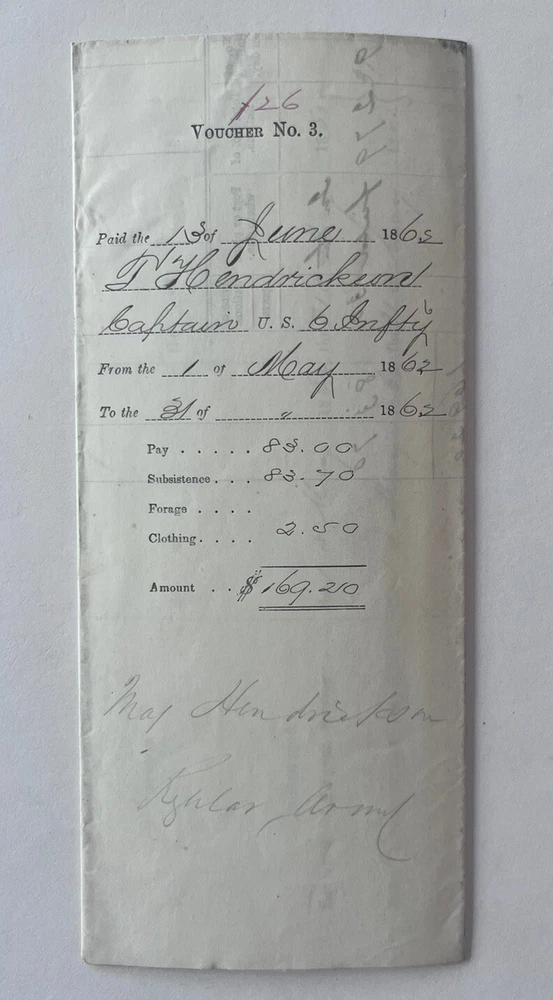 126
VOUCHER No. 3.
Paid the 13 of June 1862
T Hendrickson
Captain U. S. 6 Infty
From the 1 of May 1862
To the 31 of " 1862
Pay . . . . . 83.00
Subsistence . . . 83.70
Forage . . . .
Clothing . . . . 2.50
Amount . . $ 169.20
Maj Hendrickson
Regular Army